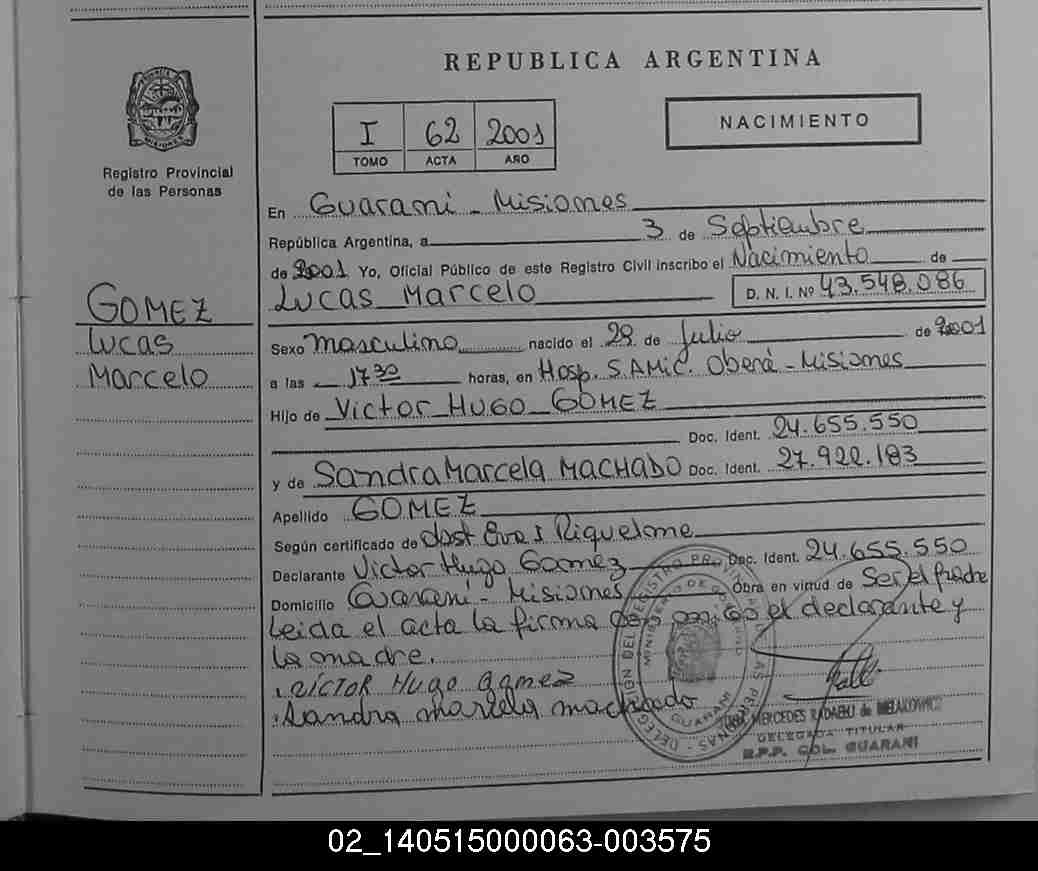 REPUBLICA ARGENTINA
PROVINCIA DE
MISIONES
Registro Provincial
de las Personas
I 62 2001
TOMO ACTA AÑO
NACIMIENTO
En Guarani - Misiones
República Argentina, a 3 de Septiembre
de 2001 Yo, Oficial Público de este Registro Civil inscribo el Nacimiento de
Lucas Marcelo D. N. I. Nº 43.548.086
GOMEZ
Lucas
Marcelo
Sexo masculino nacido el 28 de Julio de 2001
a las 17 30 horas, en Hosp. SAMIC. Oberá - Misiones
Hijo de Victor Hugo GOMEZ
Doc. Ident. 24.655.550
y de Sandra Marcela MACHADO Doc. Ident. 27.922.183
Apellido GOMEZ
Según certificado de obst Eva I Riquelme
Declarante Victor Hugo Gomez Doc. Ident. 24.655.550
Domicilio Guarani - Misiones Obra en virtud de Ser el padre
Leida el acta la firma con migo el declarante y
la madre.
VICTOR Hugo gomez
Sandra marcela machado
MERCEDES
DELEGADA TITULAR
R.P.P. COL. GUARANI
02_140515000063-003575